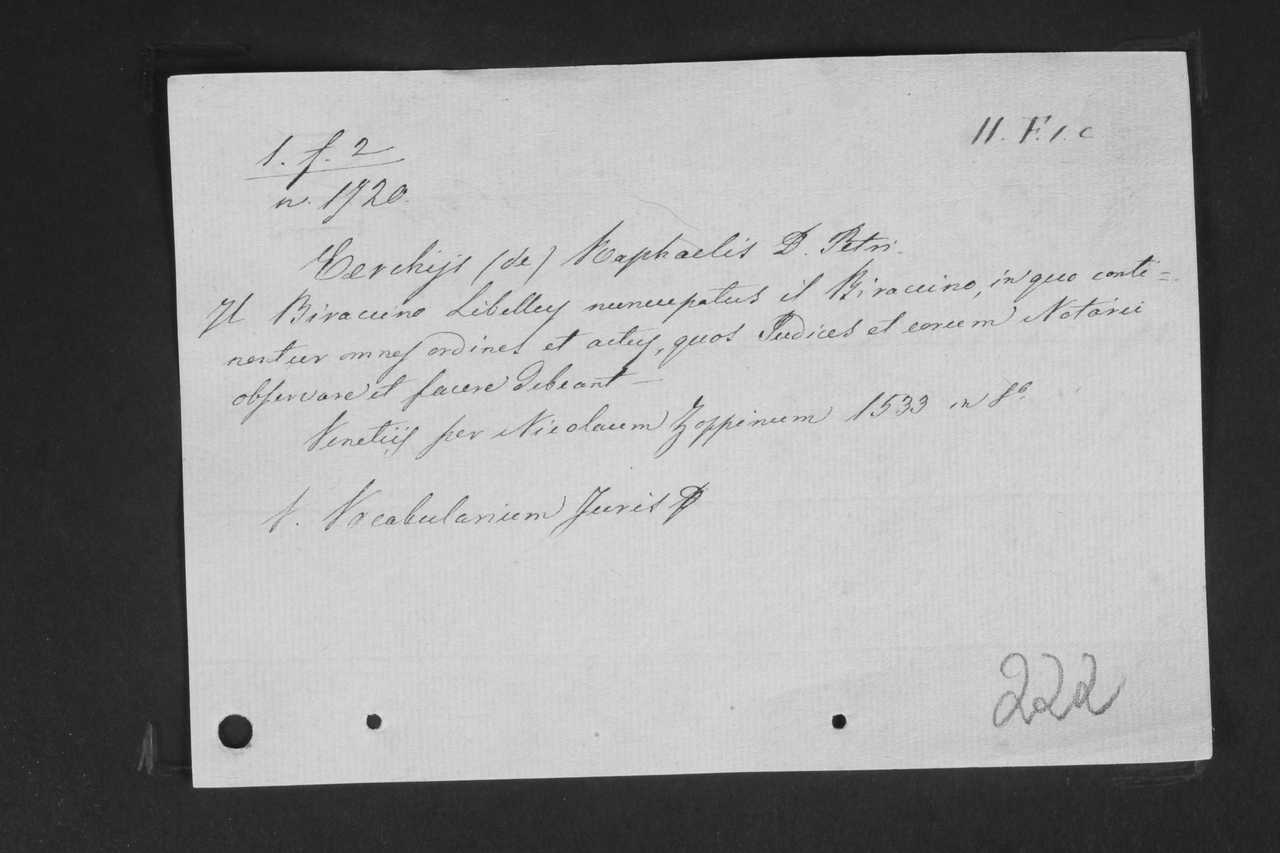 1. f. 2
n. 1720.
II. F. 1. c
Cerchijs (de) Raphaelis D. Petri.
Il Biracuino Libellus nuncupatus il Biracuino, in quo conti=
nentur omnes ordines et actus, quos Judices et eorum Notarii
observare et facere debeant—
Venetijs per Nicolaum Zoppinum 1533 in 8º
V. Vocabularium Juris
222